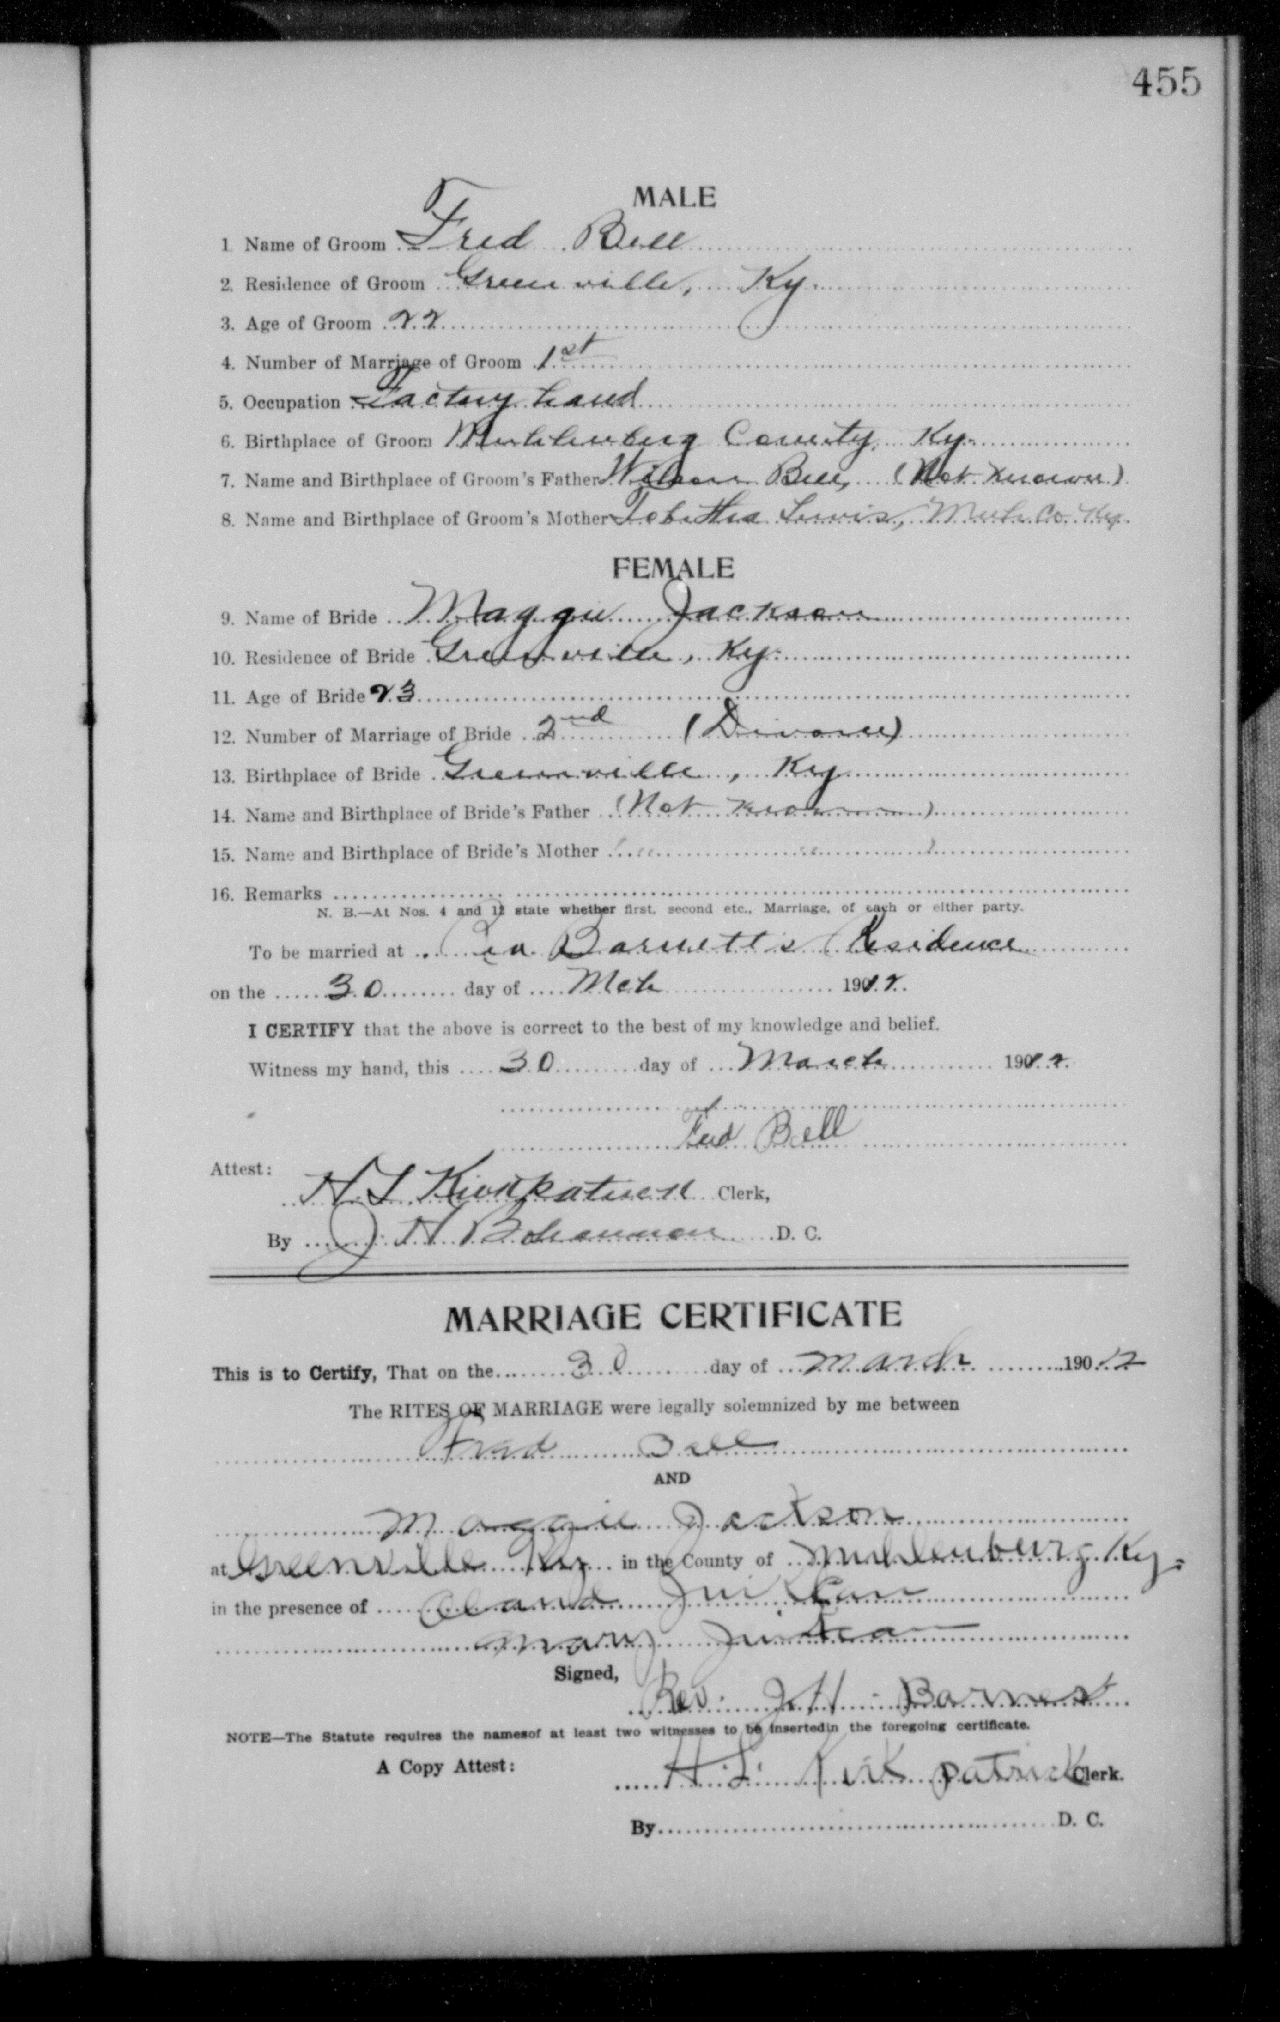 455
MALE
1. Name of Groom Fred Bell
2. Residence of Groom Greenville, Ky.
3. Age of Groom 22
4. Number of Marriage of Groom 1st
5. Occupation Factory hand
6. Birthplace of Groom Muhlenberg County, Ky.
7. Name and Birthplace of Groom's Father Wilson Bell, (Not known)
8. Name and Birthplace of Groom's Mother Tobitha Lewis, Muh. Co. Ky.
FEMALE
9. Name of Bride Maggie Jackson
10. Residence of Bride Greenville, Ky.
11. Age of Bride 23
12. Number of Marriage of Bride 2nd (Divorce)
13. Birthplace of Bride Greenville, Ky
14. Name and Birthplace of Bride's Father (Not known)
15. Name and Birthplace of Bride's Mother ( " " )
16. Remarks
N. B.—At Nos. 4 and 12 state whether first, second etc., Marriage, of each or either party.
To be married at Barnett's Residence
on the 30 day of Mch 1912.
I CERTIFY that the above is correct to the best of my knowledge and belief.
Witness my hand, this 30 day of March 1912.
Fred Bell
Attest:
H L Kirkpatrick Clerk,
By J H Bohannon D. C.
MARRIAGE CERTIFICATE
This is to Certify, That on the 30 day of March 190 12
The RITES OF MARRIAGE were legally solemnized by me between
Fred Bell
AND
Maggie Jackson
at Greenville Ky in the County of Muhlenburg Ky.
in the presence of
Mary
Signed,
Rev. J. H. Barnes
NOTE—The Statute requires the namesof at least two witnesses to be insertedin the foregoing certificate.
A Copy Attest:
H. L. Kirkpatrick Clerk.
By D. C.